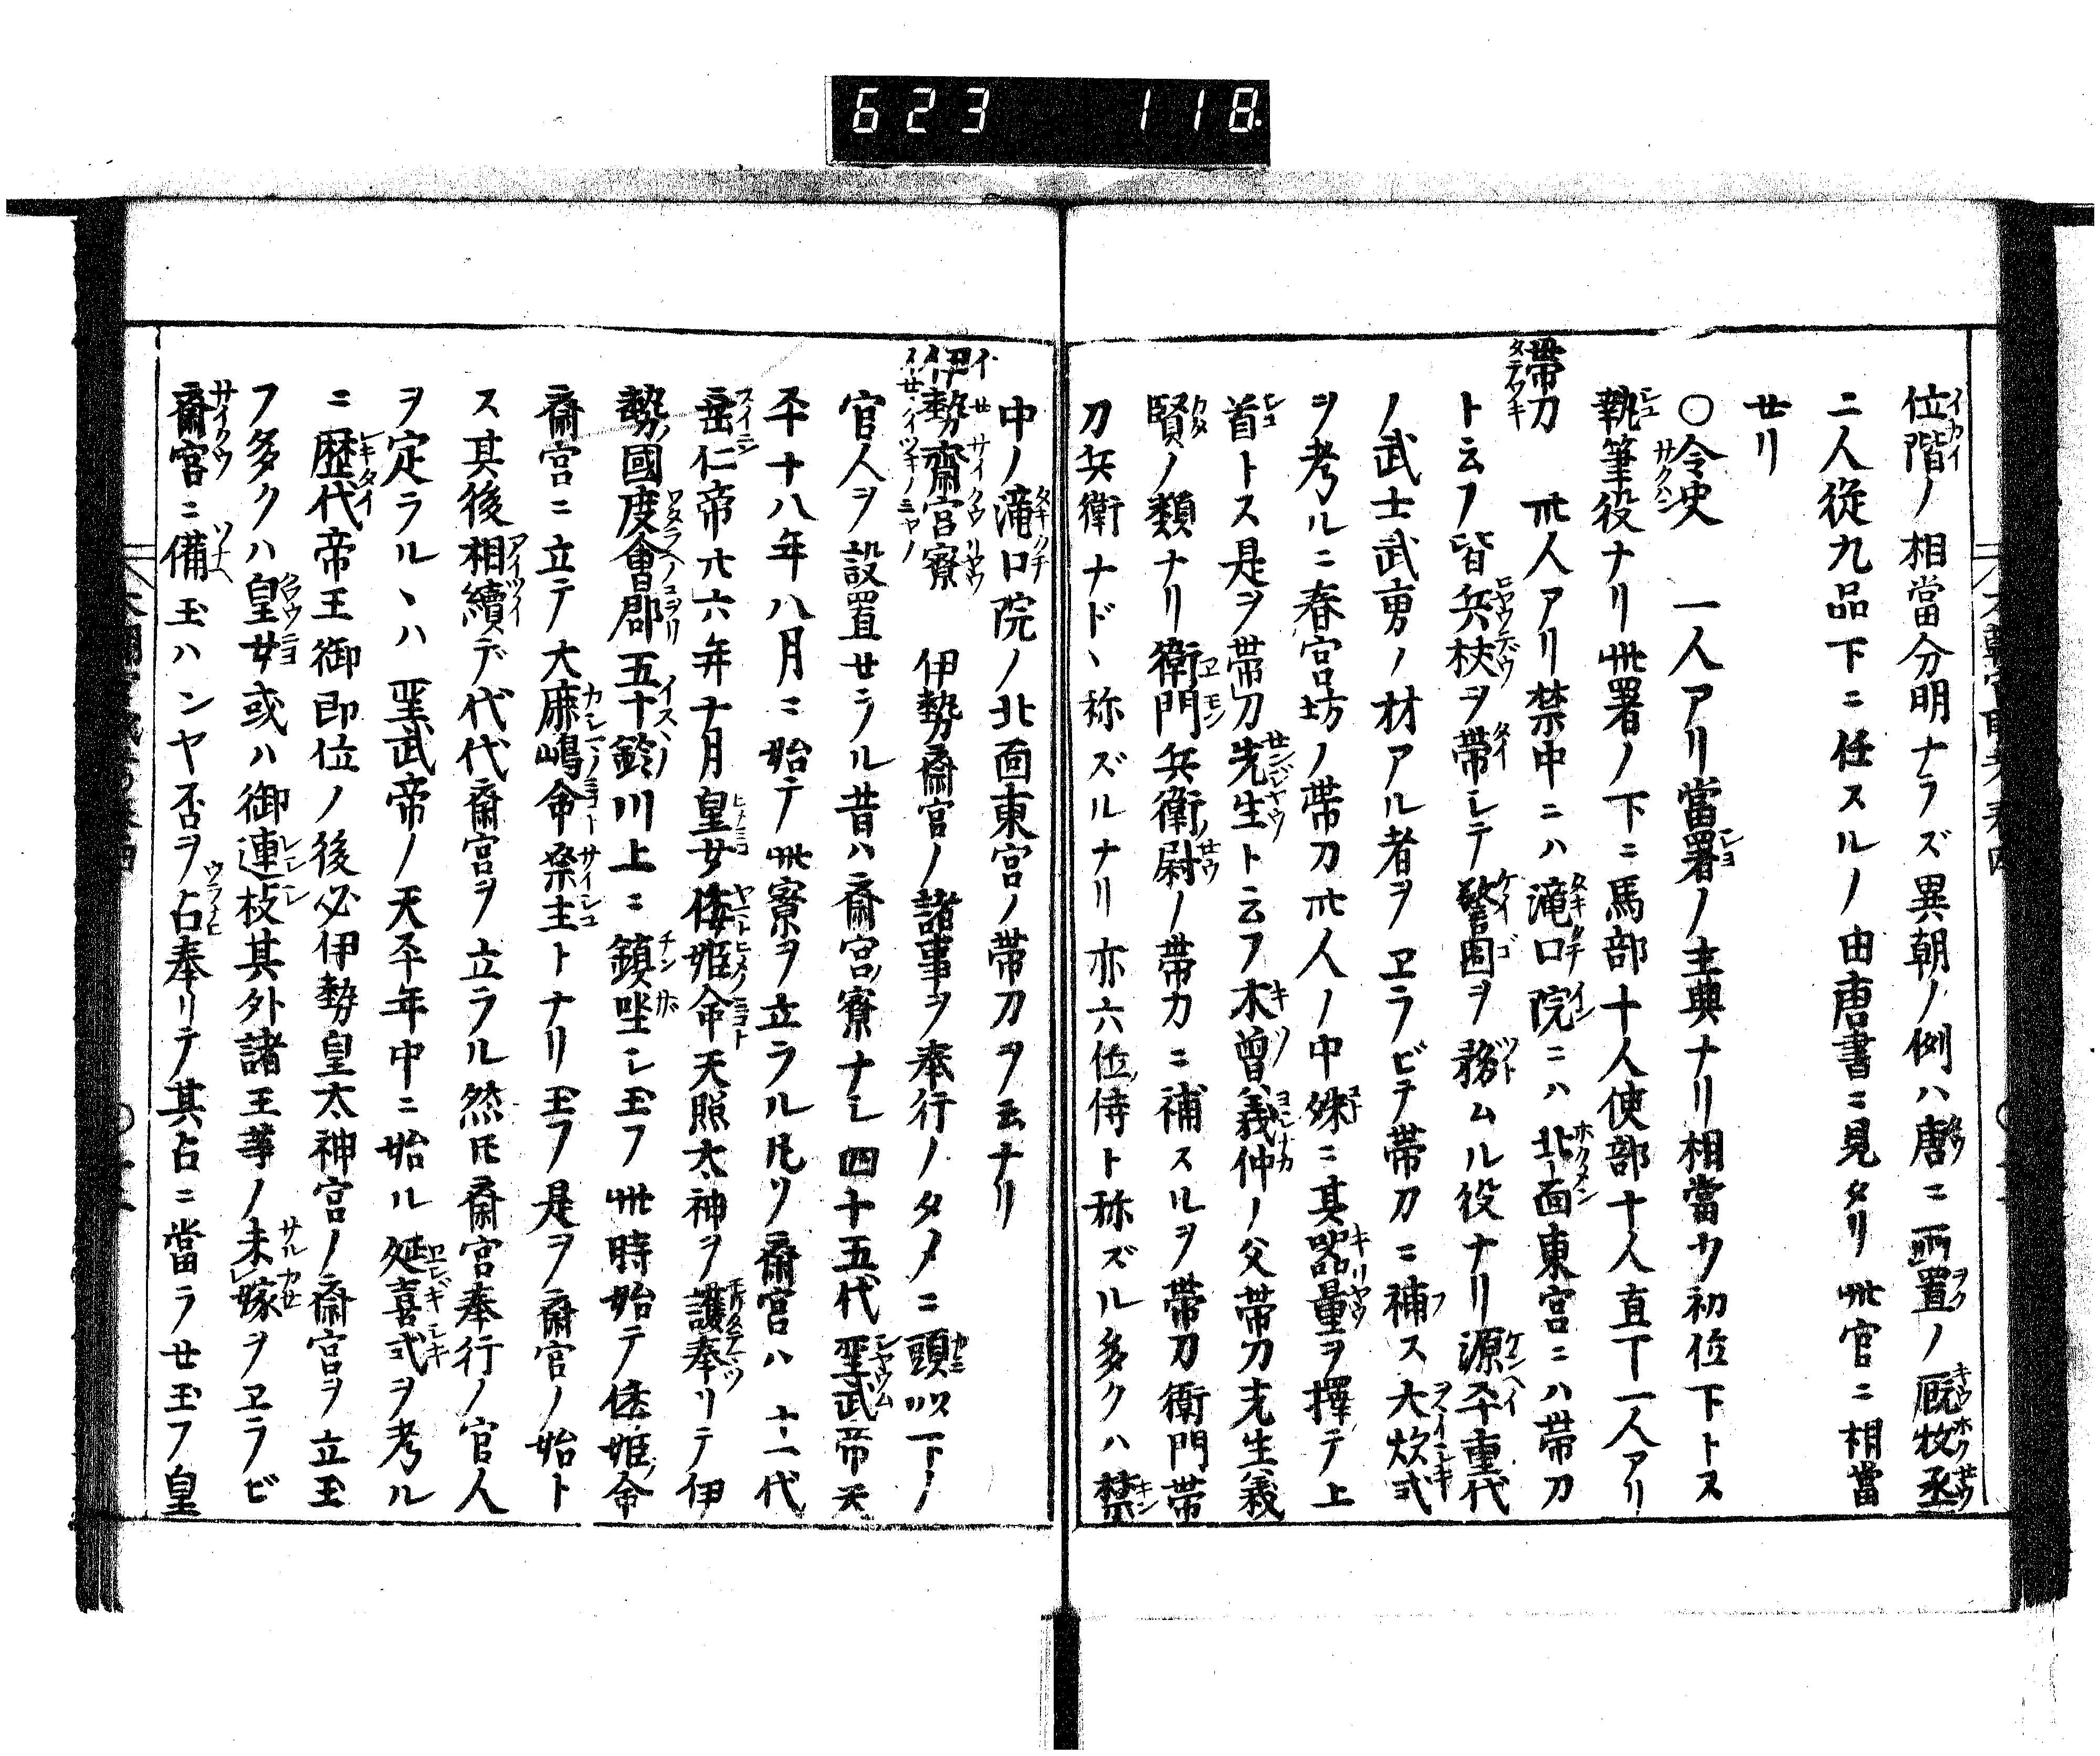 623 118.
位階ノ相當分明ナラズ異朝ノ例ハ唐ニ所置ノ厩牧丞
二人從九品下ニ任スルノ由唐書ニ見タリ此官ニ相當
せリ
○令史 一人アリ當署ノ主典ナリ相當少初位下トス
執筆役ナリ此署ノ下ニ馬部十人使部十人直丁一人アリ
帶刀 卅人アリ禁中ニハ滝口院ニハ北面東宮ニハ帶刀
ト云フ皆兵杖ヲ帶シテ警固ヲ務ムル役ナリ源平重代
ノ武士武勇ノ材アル者ヲヱラビテ帶刀ニ補ス大炊式
ヲ考ルニ春宮坊ノ帶刀卅人ノ中殊ニ其器量ヲ擇テ上
首トス是ヲ帶刀先生ト云フ木曽義仲ノ父帶刀先生義
賢ノ類ナリ衛門兵衛尉ノ帶刀ニ補スルヲ帶刀衛門帶
刀兵衛ナド、称ズルナリ亦六位侍ト称ズル多クハ禁
中ノ滝口院ノ北面東宮ノ帶刀ヲ云ナリ
伊勢齋宮寮 伊勢齋宮ノ諸事ヲ奉行ノタメニ頭以下ノ
官人ヲ設置せラル昔ハ齋宮寮ナシ四十五代聖武帝天
平十八年八月ニ始テ此寮ヲ立ラル凡ソ齋宮ハ十一代
垂仁帝廿六年十月皇女倭姫命天照太神ヲ護奉リテ伊
勢ノ國度會郡五十鈴川上ニ鎮坐シ玉フ此時始テ倭姫命
齋宮ニ立テ大麻嶋命祭主トナリ玉フ是ヲ齋宮ノ始ト
ス其後相續デ代代齋宮ヲ立ラル然𪜈齋宮奉行ノ官人
ヲ定ラル、ハ聖武帝ノ天平年中ニ始ル延喜式ヲ考ル
ニ歴代帝王御即位ノ後必伊勢皇太神宮ノ齋宮ヲ立玉
フ多クハ皇女或ハ御連枝其外諸王等ノ未嫁ヲヱラビ
齋宮ニ備玉ハンヤ否ヲ占奉リテ其占ニ當ラせ玉フ皇